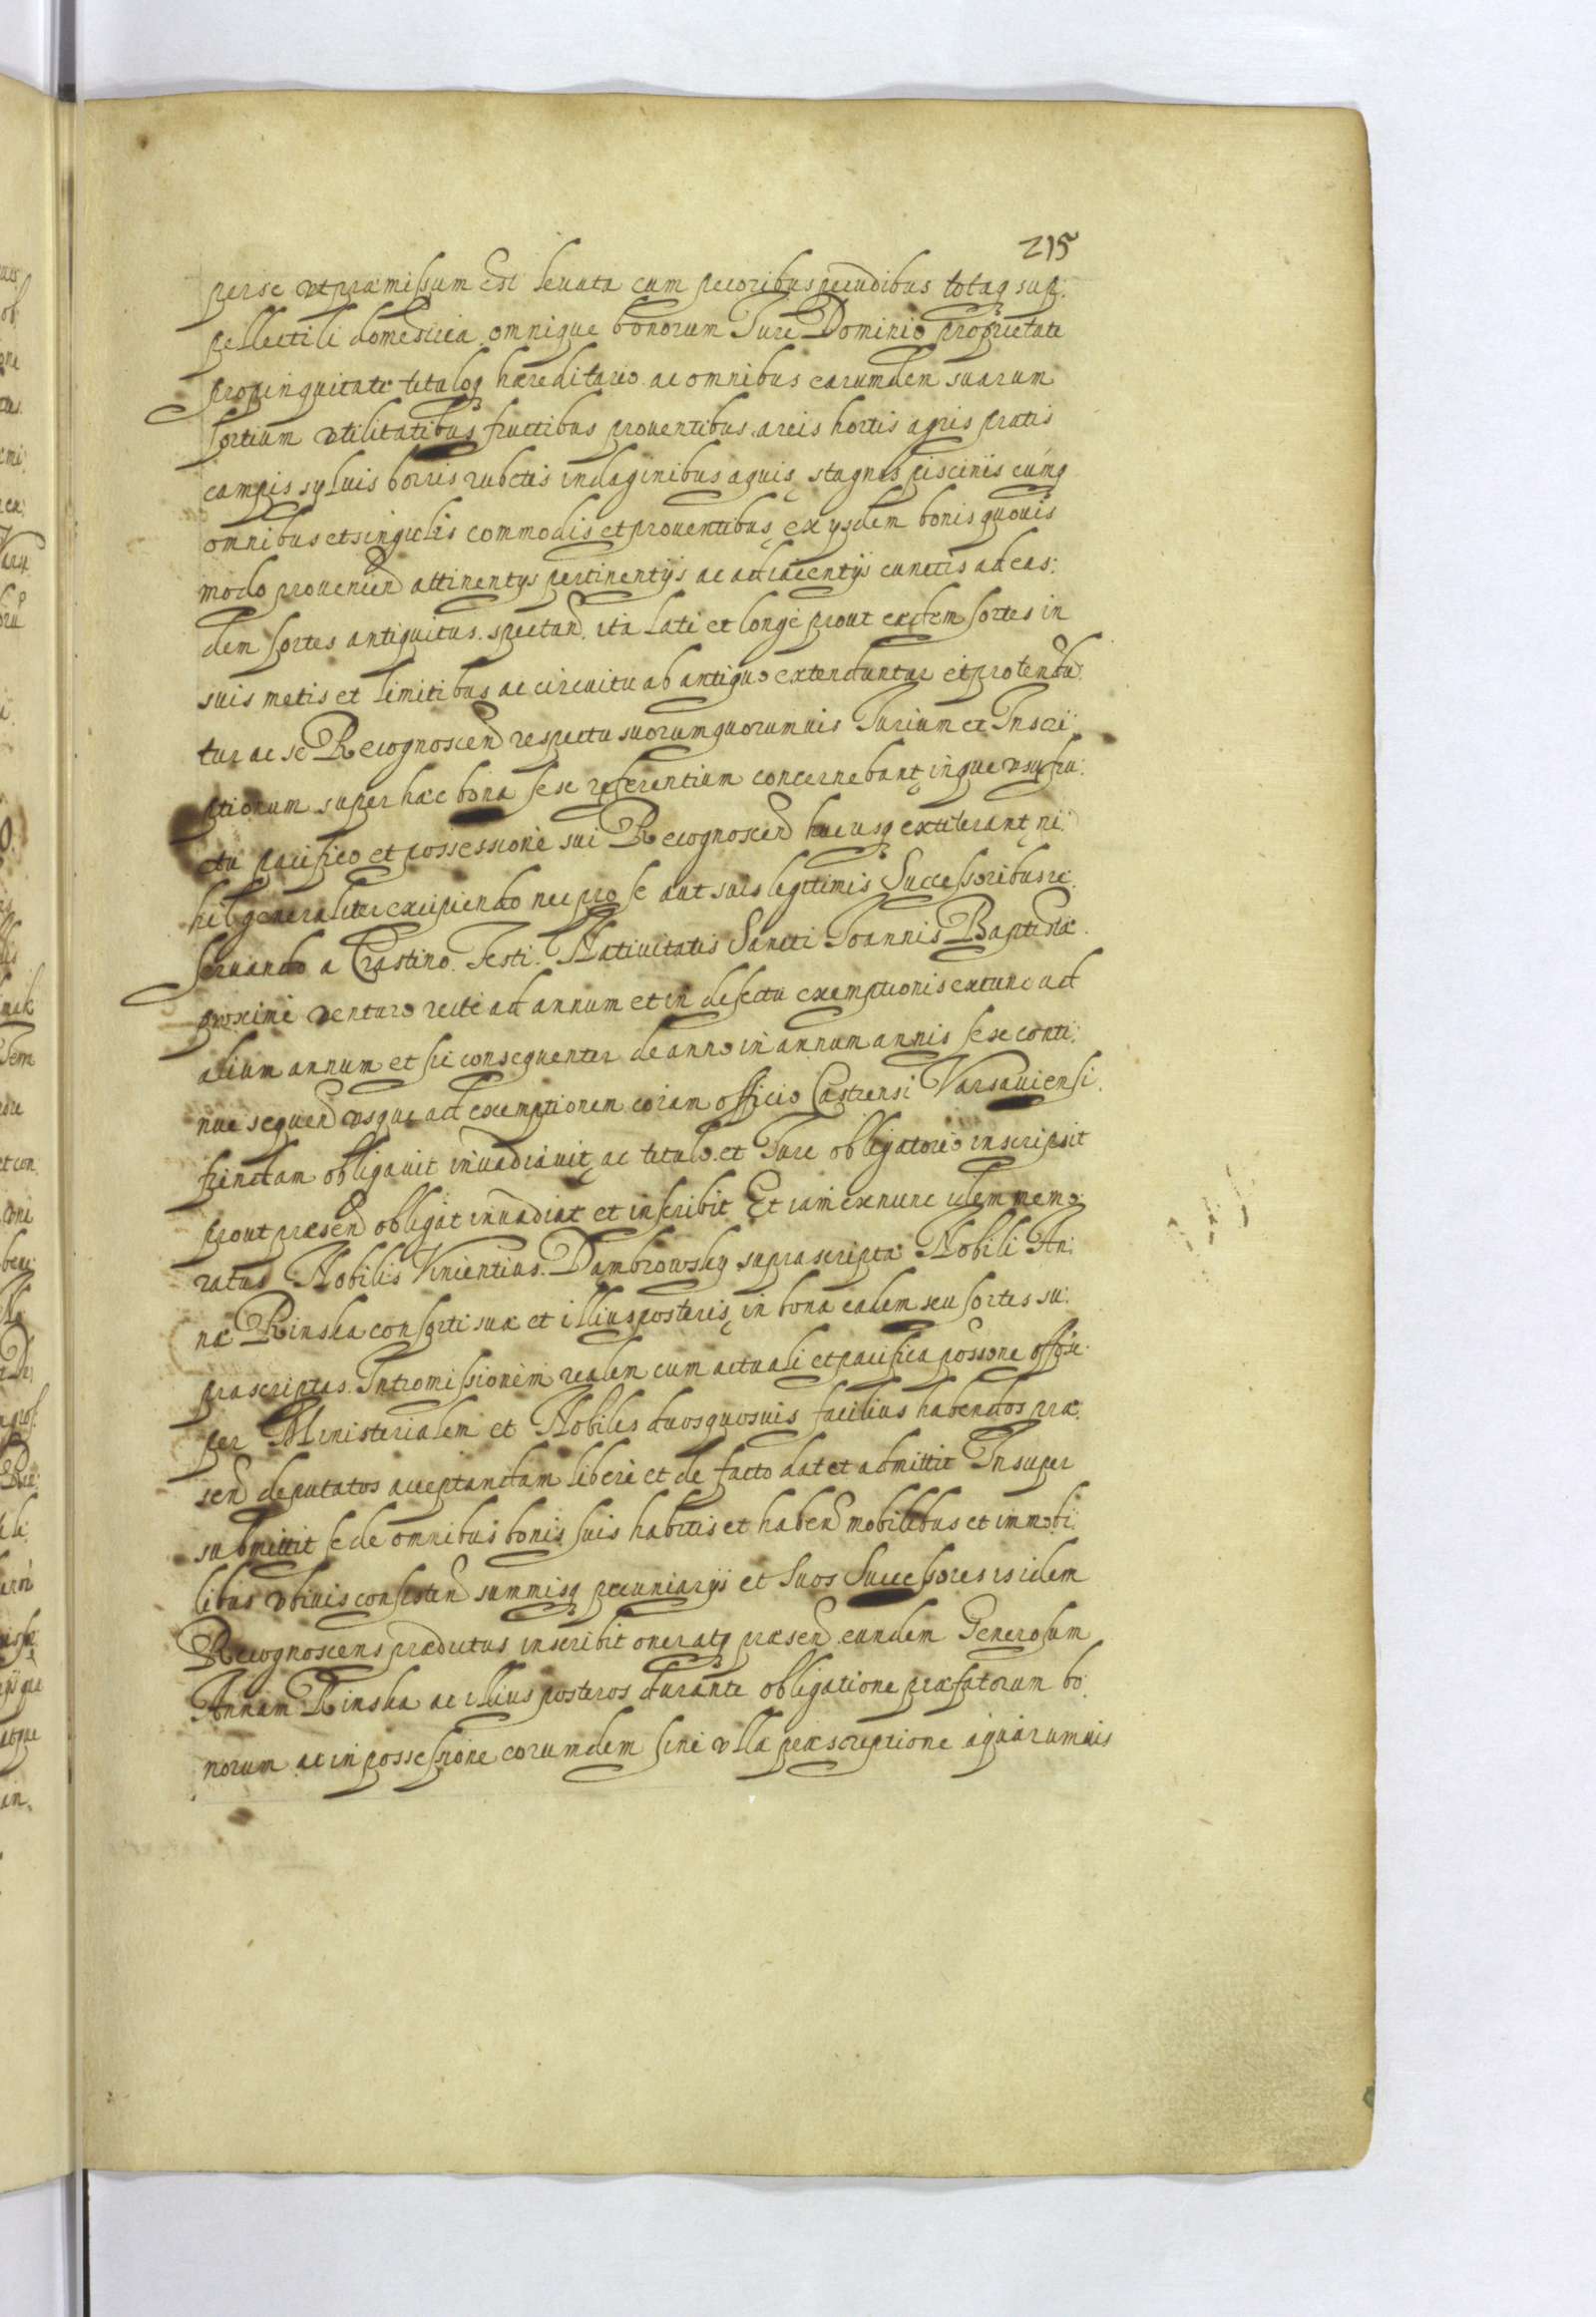 215
per se vt præmissum est leuata cum pecoribus pecudibus totaq sup:
pellectili domestica omnique bonorum Iure Dominio proprietate
propinquitate tituloq hæreditario ac omnibus earumden suarum
sortium vtilitatibus fructibus prouentibus areis hortis agris pratis
campis syluis borris rubetis indaginibus aquis stagnis piscinis cumq
omnibus et singulis commodis et prouentibus ex ysdem bonis quouis
modo prouenien attinentys pertinentijs ac adiacentijs cunctis ad eas:
dem sortes antiquitus spectan ita late et longe prout eædem sortes in
suis metis et limitibus ac circuitu ab antiquo extenduntur et protendu:
tur ac se Recognoscen respectu suorum quorumuis Iurium et Inscri:
ptionum super hæc bona sese referentium concernebant inque vsufru:
ctu pacifico et possessione sui Recognoscen hucusq extiterant ni:
hil generaliter excipiendo nec pro se aut suis legitimis Successoribus re:
seruando a Crastino Festi Natiuitatis Sancti Ioannis Baptistæ
proxime venturo recte ad annum et in defectu exemptionis extunc ad
alium annum et sic consequenter de anno in annum annis sese conti:
nue sequen vsque ad exemptionem coram officio Castrensi Varsauiensi
fiendam obligauit inuadiauit ac titulo et Iure obligatorio inscripsit
prout præsen obligat inuadiat et inscribit Et iam exnunc idem memo:
ratus Nobilis Vincentius Dambrowsky suprascriptæ Nobili An:
næ Rinska consorti suæ et illius posteris in bona eadem seu sortes su:
prascriptas Intromissionem realem cum actuali et pacifica possone
per Ministerialem et Nobiles duos quosuis facilius habendos præ:
sen deputatos acceptandam libere et de facto dat et admittit Insuper
submittit se de omnibus bonis suis habitis et haben mobilibus et immobi:
libus vbiuis consisten summisq pecuniarijs et suos Successores isidem
Recognoscens prædictus inscribit oneratq præsen eandem Generosum
Annam Rinska ac illius posteros durante obligatione præfatorum bo:
norum ac in possessione eorumdem sine vlla præscriptione a quarumuis